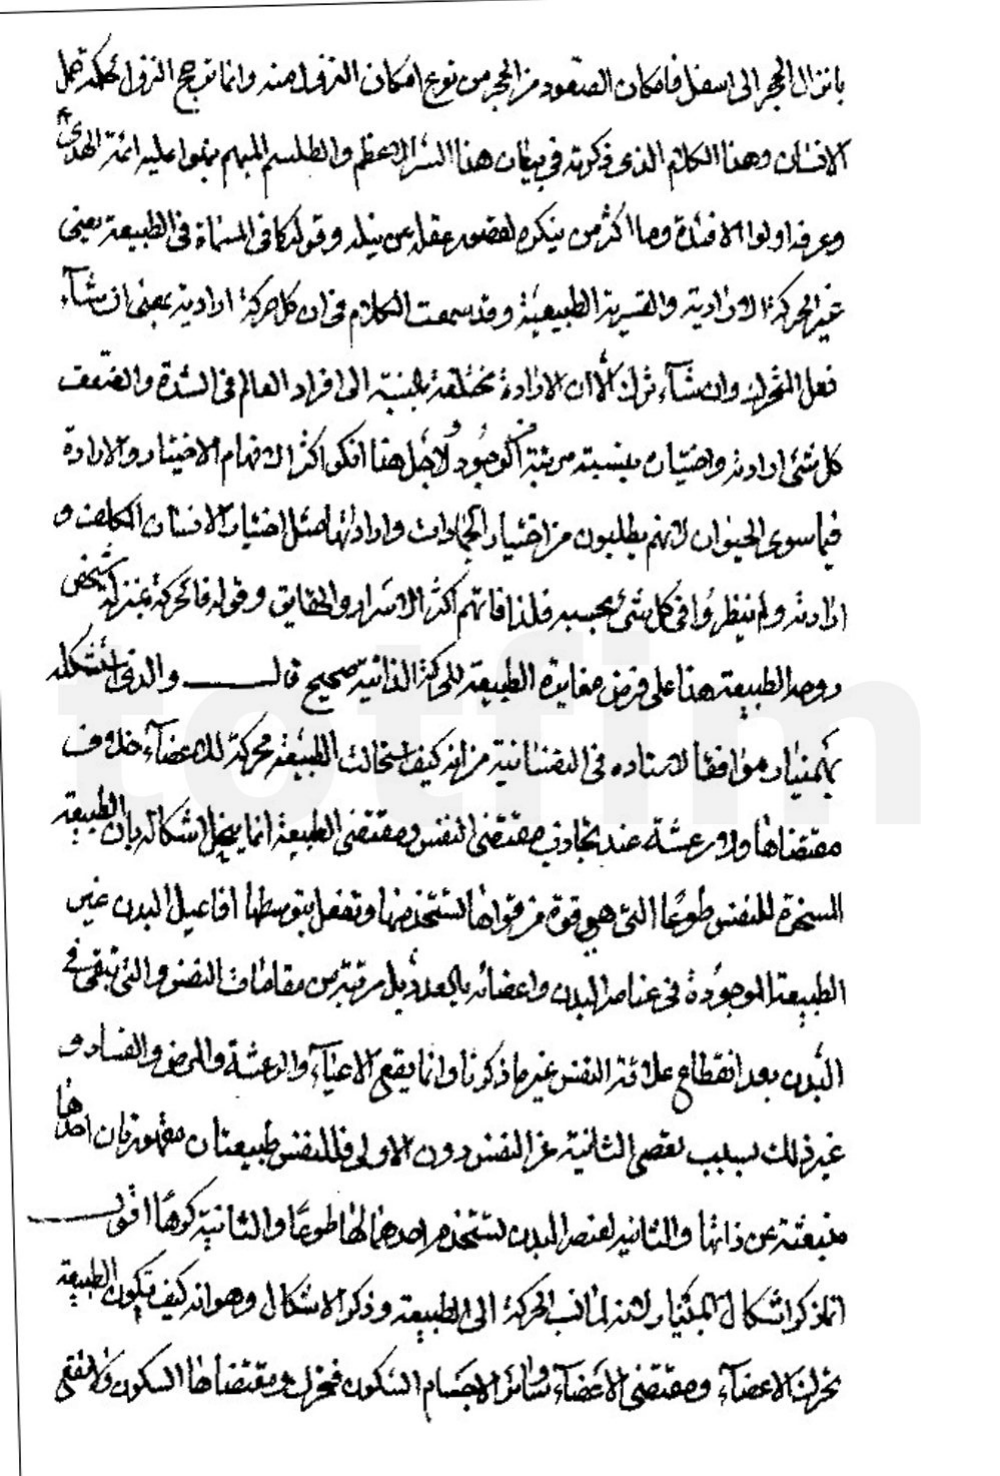 بانزال الحجر الى اسفل فامكان الصعود من الحجر من نوع امكان النزول منه وانما ترجح النزول لحكمة حمل
الانسان وهذا الكلام الذى ذكرته في بيان هذا السر الاعظم والطلسم المبهم نبهوا عليه ائمة الهدى
وعرفه اولوا الافئدة وما اكثر من ينكره لقصور عقله عن نيله وقوله كافى المسماة فى الطبيعة يعنى
غير الحركة الارادية والقسرية الطبيعية وقد سمعت الكلام فى ان كل حركة ارادية بمعنى ان شآء
فعل المتحرك وان شآء ترك الّا ان الارادة مختلفة بالنسبة الى افراد العالم فى الشدة والضعف
كل شئ ارادته واختياره بنسبته مرتبة فى الوجود ولاجل هذا انكر اكثر الافهام الاختيار والارادة
فيما سوى الحيوان لانهم يطلبون من اختيار الجمادات وارادتها مثل اختيار الانسان المكلف و
ارادته ولم ينظروا فى كل شئ بحسبه فلذا فاتهم اكثر الاسرار والحقايق وقوله فالحركة بمنزلة شخص
روحه الطبيعة هذا على فرض مغايرة الطبيعة للحركة الذاتية صحيح قال والذى استشكله
بهمنيار موافقا لاستاده فى النفسانية من انه كيف استحالت الطبيعة محركة للاعضآء خلاف
مقتضاها ولا رعشة عند تجاذب مقتضى النفس ومقتضى الطبيعة انما ينحل اشكاله بان الطبيعة
المسخرة للنفس طوعًا التى هى قوة من قواها تستخدمها وتفعل بتوسطها افاعيل البدن غير
الطبيعة الموجودة فى عناصر البدن واعضائه بالعدد بل مرتبة من مقامات النفس والتى تبقى فى
البدن بعد انقطاع علاقة النفس غير ما ذكرنا وانما يقع الاعيآء والرعشة والمرض والفساد و
غير ذلك بسبب تعصى الثانية عن النفس دون الاولى فللنفس طبيعتان مقهورتان احدها
منبعثة عن ذاتها والثانية لعنصر البدن تستخدم احدهما لها طوعًا والثانية كرهًا اقول
انما ذكر اشكال بهمنيار لانه لما نسب الحركة الى الطبيعة وذكر الاشكال وهو انه كيف تكون الطبيعة
يحرك الاعضآء ومقتضى الاعضآء وسائر الاجسام السكون فتحرك ومقتضاها السكون